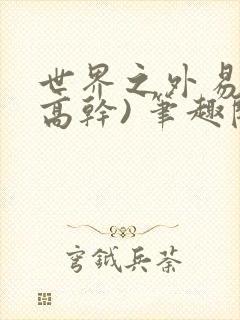 世界之外易
高幹) 筆趣閣
穹鉞兵荼